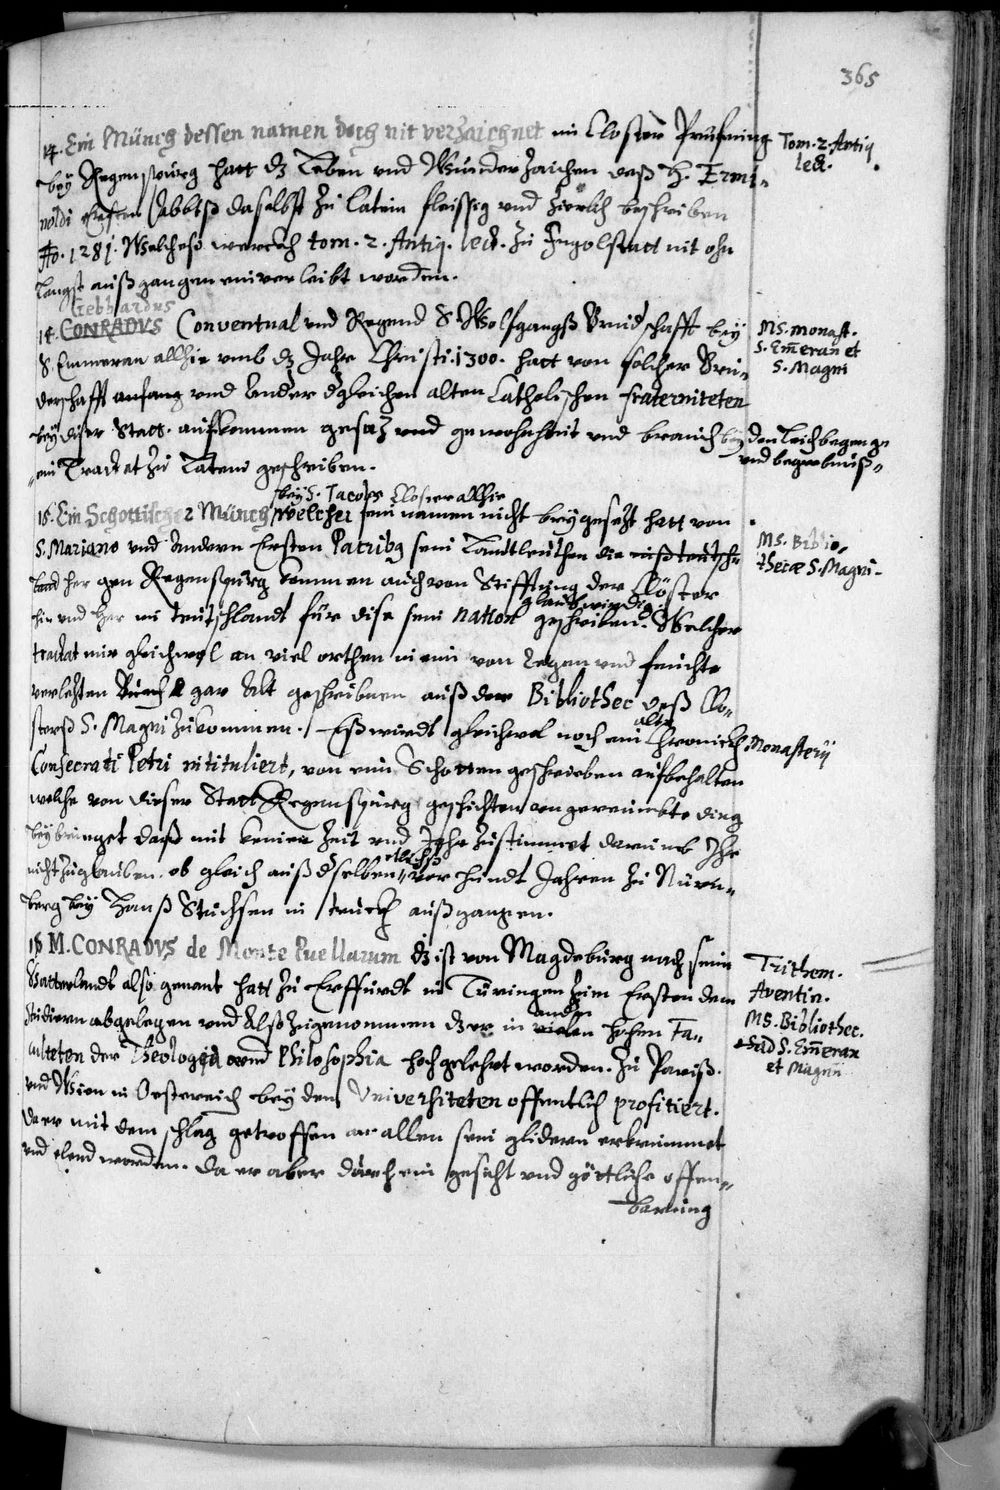 365
14. Ein Münch dessen namen doch nit verzaichnet im Closter Prüfning
bey Regenspurg hatt dz Leben und Wunderzaichen deß H. Ermi-
noldi ersten Abbtß daselbst zu latein fleissig und zierlich beschriben
Ao. 1281. Welcheß werckh tom. 2. Antiq. lect. zu Ingolstatt nit ohn
langst außgangen einverleibt worden.
Tom. 2. Antiq
lect.
Gebhardus
14. CONRADVS Conventual und Regend S. Wolfgangß Bruidschafft bey
S. Emmeran allhie umb dz Jahr Christi. 1300. hatt von solcher Bru-
derschafft anfang und ander dgleichen alten Catholischen fraterniteten
bey diser Statt. aufkommen gesaz und gewohnheit und brauch bey den leichbegenge
und begrebnuß
ein Tractat zu Latein geschriben.
MS. monast.
S. Em̄eran et
S. Magni
bey S. Jacobs Closter allhie
16. Ein Schottischer Münch welcher sein namen nicht beygesezt hatt von
S. Mariano und andern Ersten Patribq seinen Landtleuthen die auß teutsch-
land her gen Regenspurg kommen auch von Stifftung der Clöster
hin und her in teutschlandt für dise sein nation glaubwirdig geschriben. Welcher
tractat mir gleichwol an viel orthen in ein von Regen und feuchte
verlezten Buech gar alt geschribnen auß der Bibliothec deß Clo-
sterß S. Magni zukommen. / Eß wirdt gleichwol noch ein alte Chronickh Monasterij
Consecrati Petri intituliert, von ein Schotten geschrieben aufbehalten
welche von dieser Statt Regenspurg geschichten ungereimbte ding
beybringet daß mit keiner Zeit und Jahr zustimmet darumb Ihr
nicht zuglauben. ob gleich auß dselben etlichß vor hundt Jahren zu Nürn-
berg bey Hanß Stuchsen in truckh außgangen.
MS. Biblio-
thecæ S. Magni-
18 M. CONRADVS de Monte Puellarum dz ist von Magdeburg nach seim
Vatterlandt also genant hatt zu Erffurdt in Türingen zum Ersten dem
studiern abgelegen und also zugenommen dz er in andn vielen hohen Fa-
culteten der Theologia und Philosophia hochgelehrt worden. Zu Pariß.
und Wien in Oesterreich bey den Universiteten offentlich profitiert.
Da er mit dem schlag getroffen an allen sein glidern erkrümmet
und elend worden. Da er aber durch ein gesicht und göttliche offen-
barung
Trithem.
Aventin.
MS. Bibliothec.
ad S. Em̄eran
et Magnū